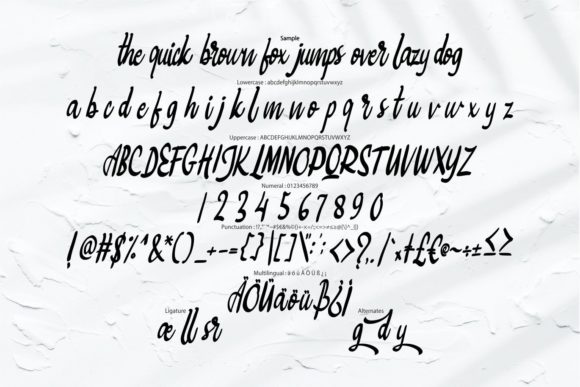 Sample
the quick brown fox jumps over lazy dog
Lowercase : abcdefghijklmnopqrstuvwxyz
a b c d e f g h i j k l m n o p q r s t u v w x y z
Uppercase : ABCDEFGHIJKLMNOPQRSTUVWXYZ
ABCDEFGHIJKLMNOPQRSTUVWXYZ
Numeral : 0123456789
1 2 3 4 5 6 7 8 9 0
!@#$%^&*()_+-={}|[]\":;<>?,./`×£€©~÷±≤≥
Multilingual : ä ö ü Ä Ö Ü ß ¿ ¡
ÄÖÜäöüß¿¡
Ligature
æ ll sr
Alternates
g d y